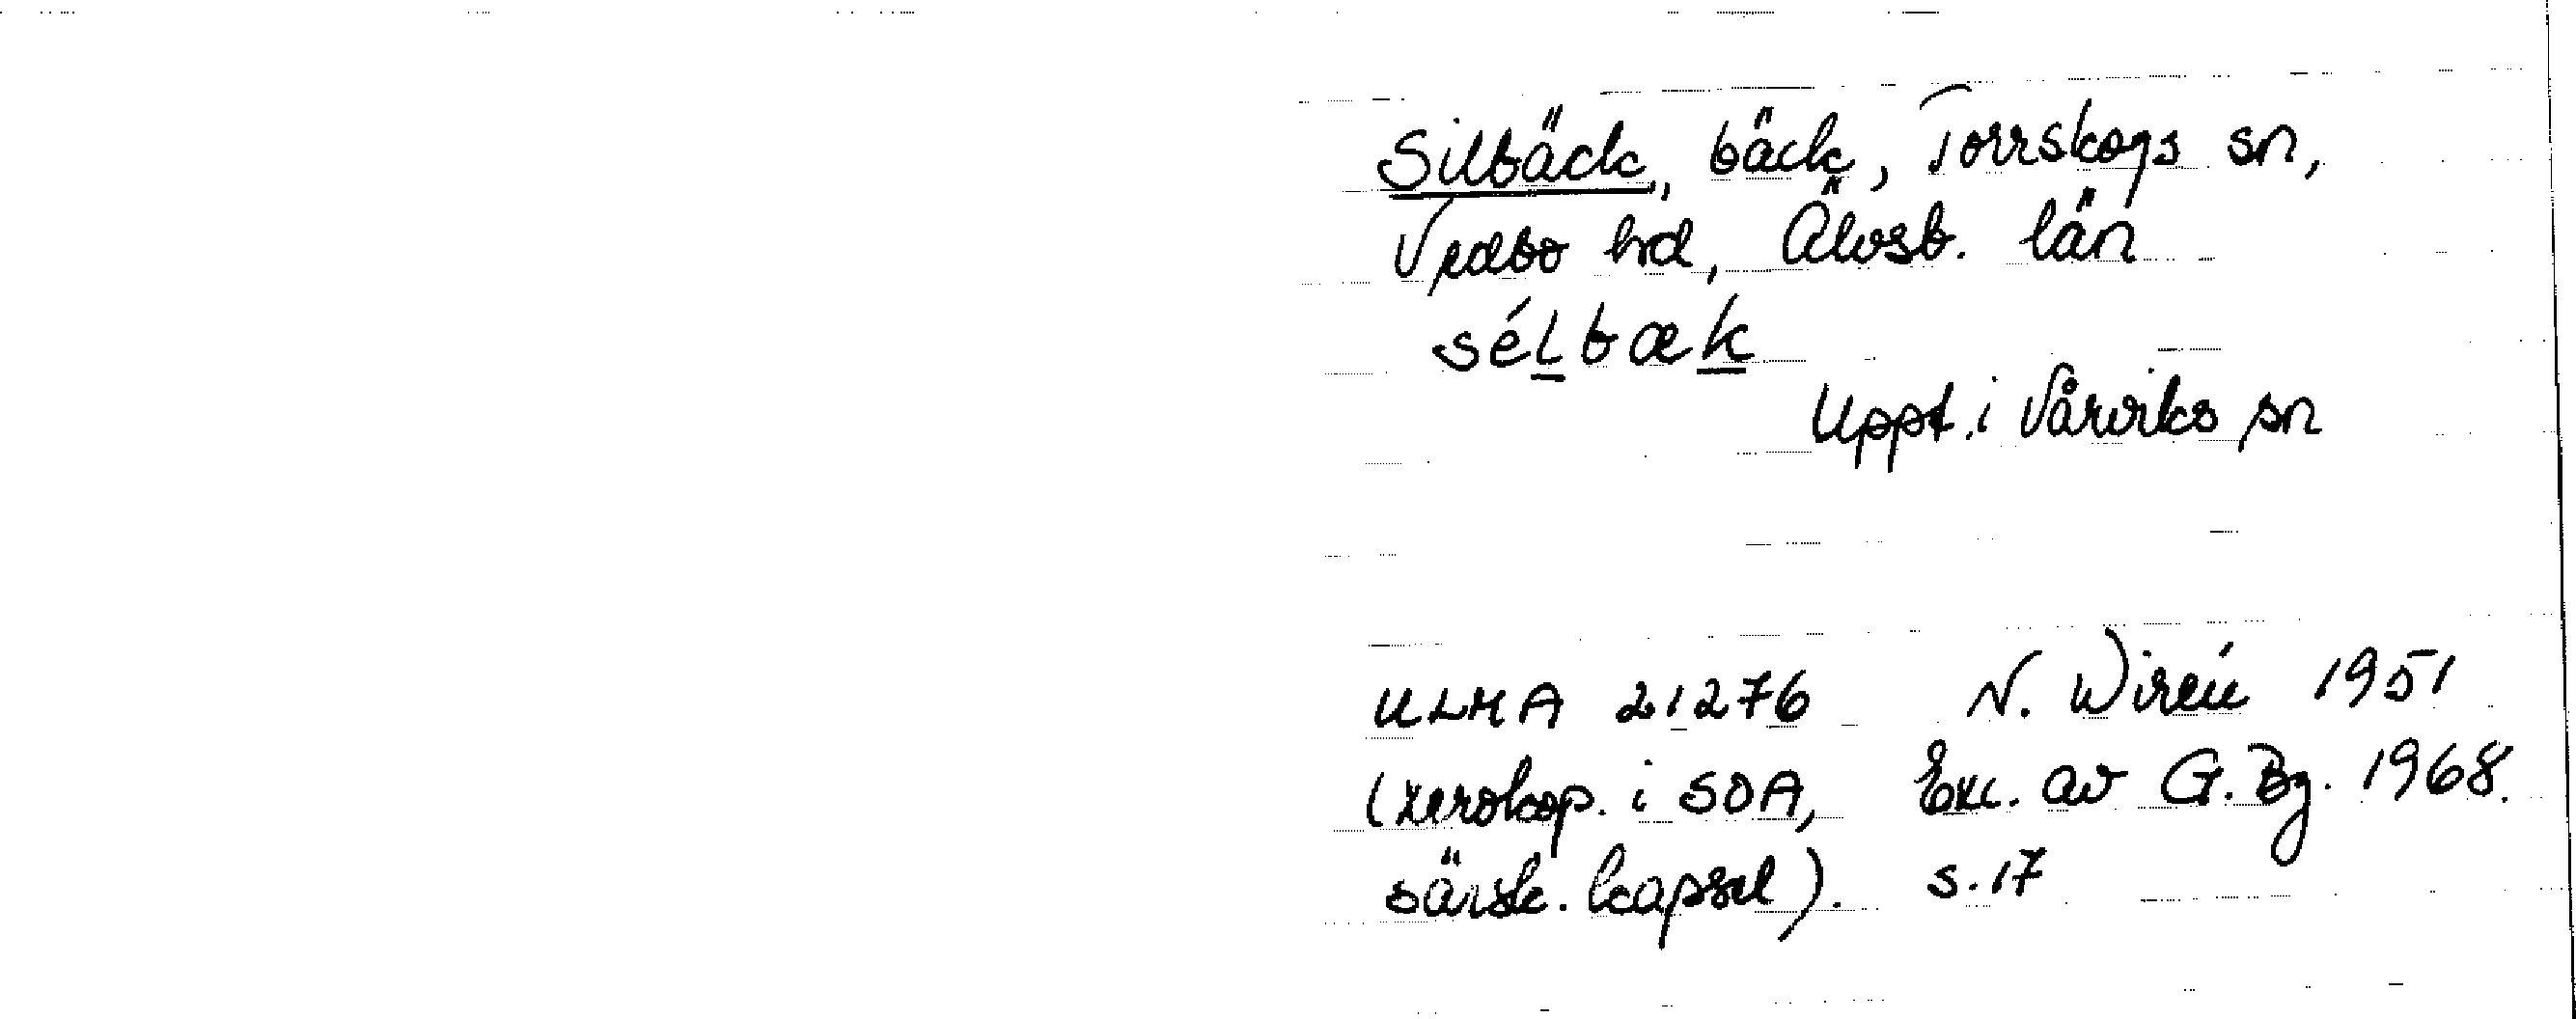 Silbäck, bäck, Torrskogs sn,
Vedbo hd, Älvsb. län
sélbæk
Uppt. i Vårviks sn
ULMA 21276 N. Wirén 1951
(xerokop. i SOA, Exc. av G. Bg. 1968.
särsk. kapsel). s. 17